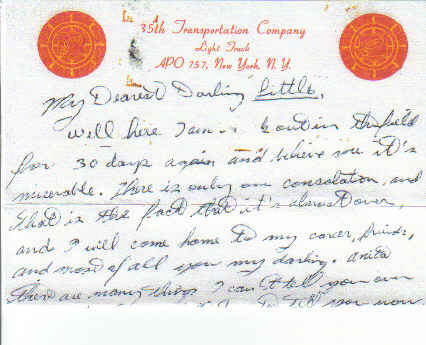 35th Transportation Company
Light Truck
APO 757, New York, N. Y.
My Dearest Darling Little,
Well here I am out in the field
for 30 days again and believe you it's
miserable. There is only one consolation, and
that is the fact that it's almost over,
and I will come home to my career, friends,
and most of all you my darling. Anita
there are many things I can't tell you
tell you now